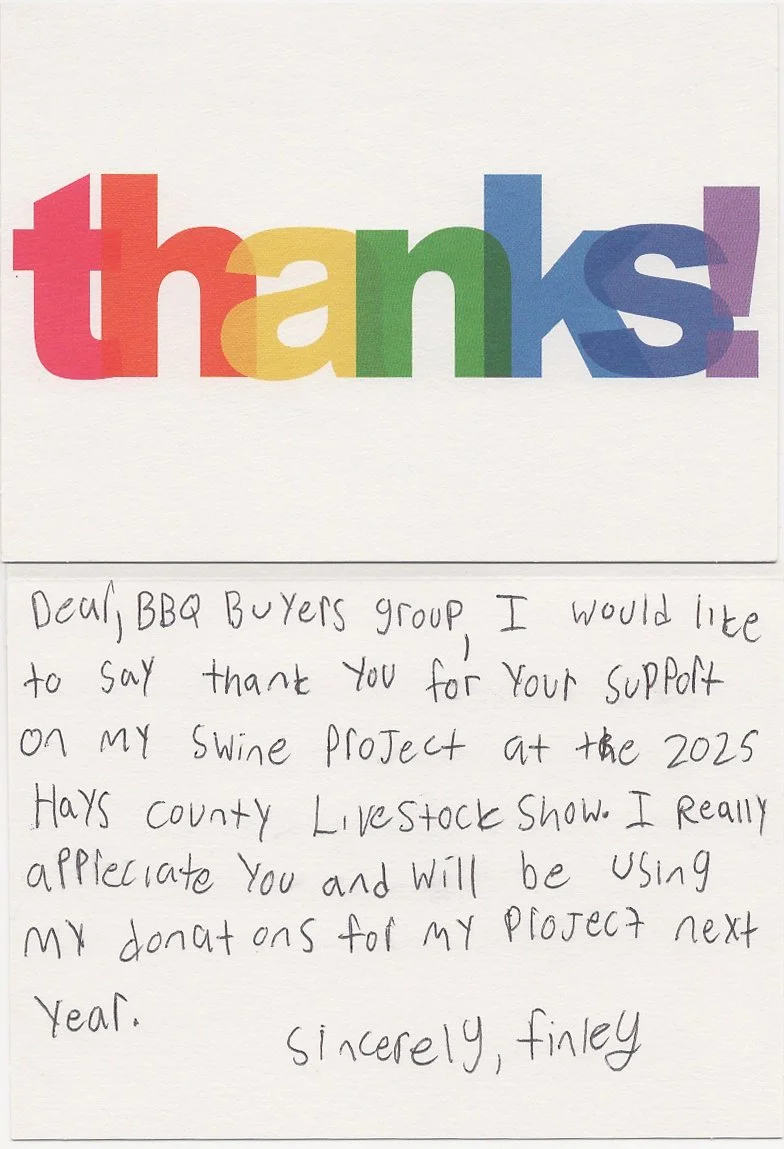 thanks!
Dear, BBQ Buyers group, I would like
to say thank you for your support
on my swine project at the 2025
Hays county Livestock Show. I Really
appreciate you and will be using
my donatons for my project next
year.
sincerely, finley